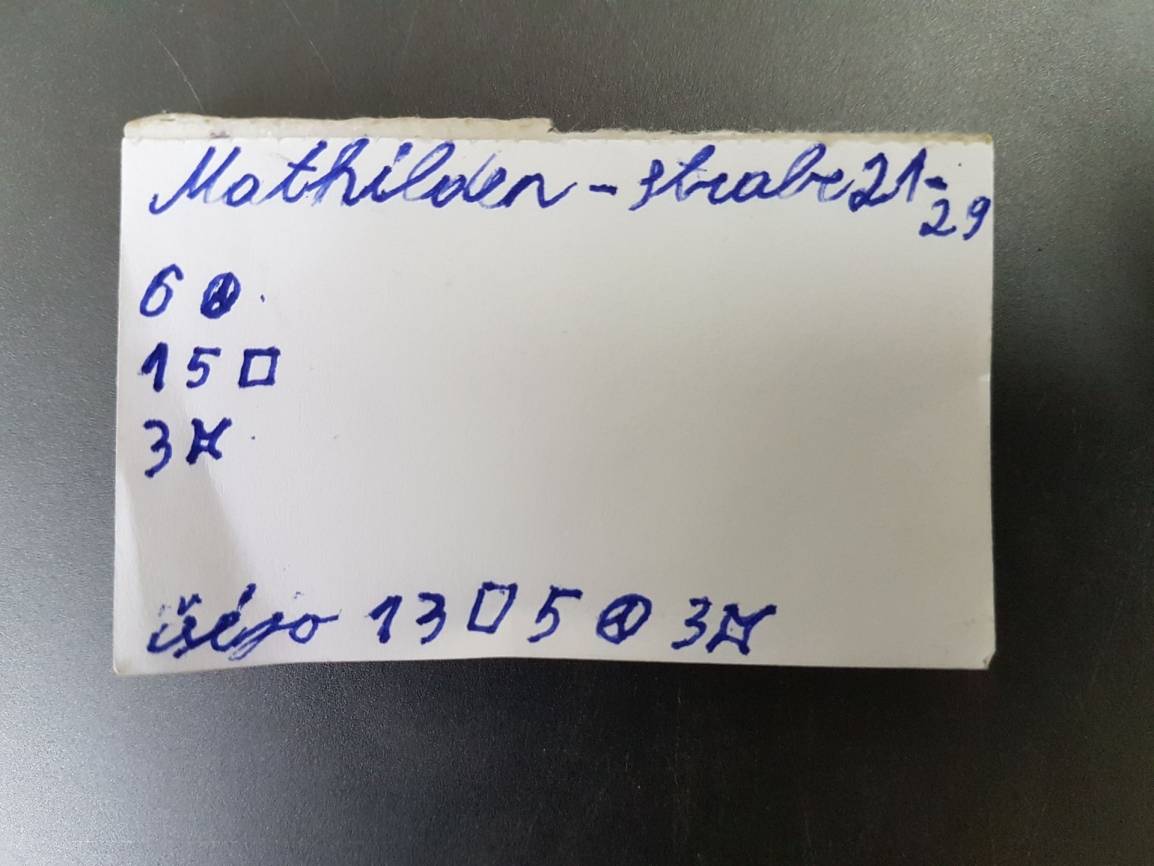 Mathilden - straße 21-29
6
15 □
3
išėjo 13 □ 5 3